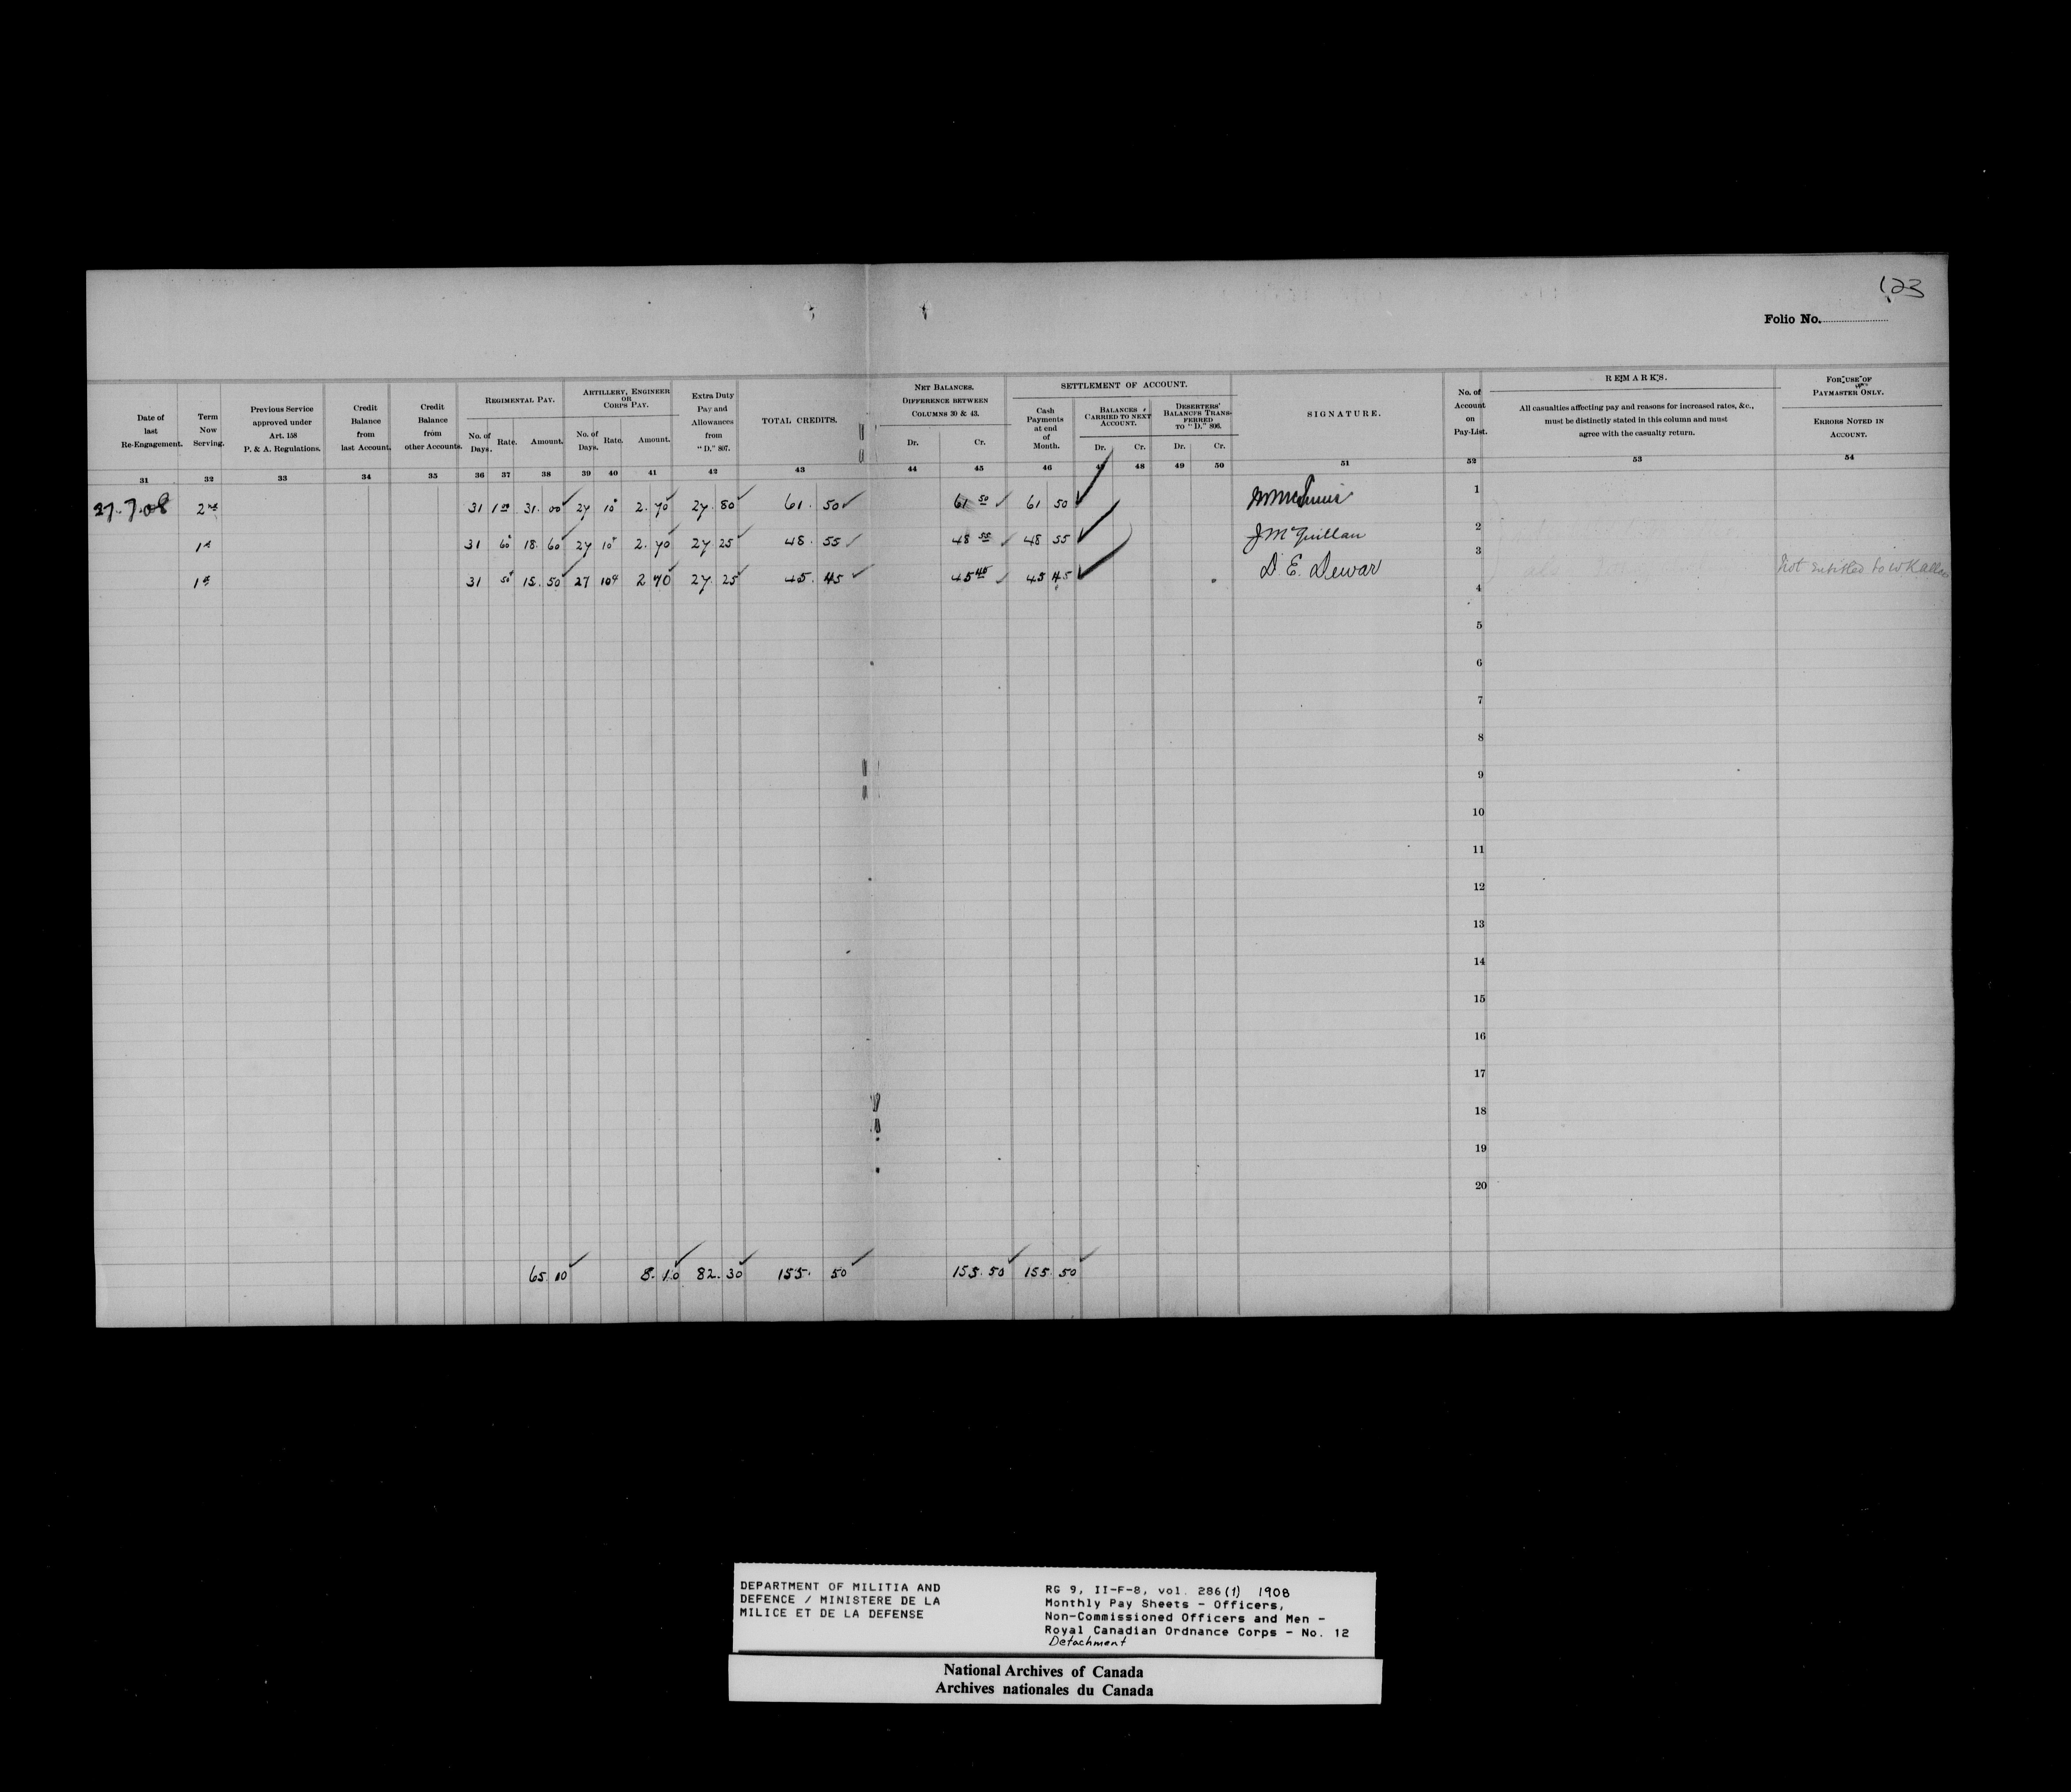 123
Folio No.
Date of last Re-Engagement.
Term Now Serving.
Previous Service approved under Art. 158 P. & A. Regulations.
Credit Balance from last Account.
Credit Balance from other Accounts.
REGIMENTAL PAY.
No. of Days. Rate. Amount.
ARTILLERY, ENGINEER OR CORPS PAY.
No. of Days. Rate. Amount.
Extra Duty Pay and Allowances from "D." 807.
TOTAL CREDITS.
NET BALANCES. DIFFERENCE BETWEEN COLUMNS 30 & 43.
Dr. Cr.
SETTLEMENT OF ACCOUNT.
Cash Payments at end of Month.
BALANCES CARRIED TO NEXT ACCOUNT.
Dr. Cr.
DESERTERS' BALANCES TRANSFERRED TO "D." 806.
Dr. Cr.
SIGNATURE.
No. of Account on Pay-List.
REMARKS.
All casualties affecting pay and reasons for increased rates, &c., must be distinctly stated in this column and must agree with the casualty return.
FOR USE OF PAYMASTER ONLY.
ERRORS NOTED IN ACCOUNT.
31 32 33 34 35 36 37 38 39 40 41 42 43 44 45 46 47 48 49 50 51 52 53 54
27.7.08 2nd 31 1.00 31.00 27 10 2.70 27.80 61.50 61 50 61 50 1
1st 31 60 18.60 27 10 2.70 27 25 48.55 48 55 48 55 J McQuillan 2
1st 31 50 15.50 27 10¢ 2 70 27.25 45.45 45 45 45 45 D. E. Dewar 3 Not entitled to
4
5
6
7
8
9
10
11
12
13
14
15
16
17
18
19
20
65 10 8.10 82.30 155. 50 155.50 155.50
DEPARTMENT OF MILITIA AND
DEFENCE / MINISTERE DE LA
MILICE ET DE LA DEFENSE
RG 9, II-F-8, vol. 286(1) 1908
Monthly Pay Sheets - Officers,
Non-Commissioned Officers and Men -
Royal Canadian Ordnance Corps - No. 12
Detachment
National Archives of Canada
Archives nationales du Canada